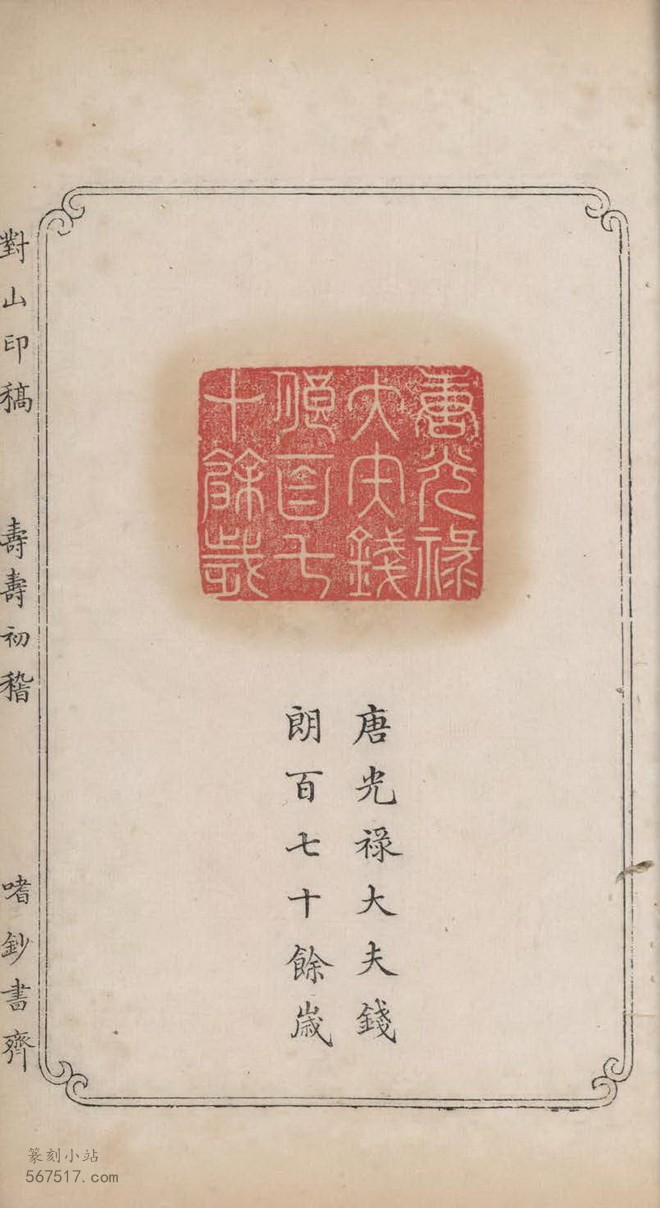 唐光祿
大夫錢
朗百七
十餘歲
唐光祿大夫錢
朗百七十餘歲
對山印稿
壽壽初稽
嗜鈔書齊
篆刻小站
567517.com